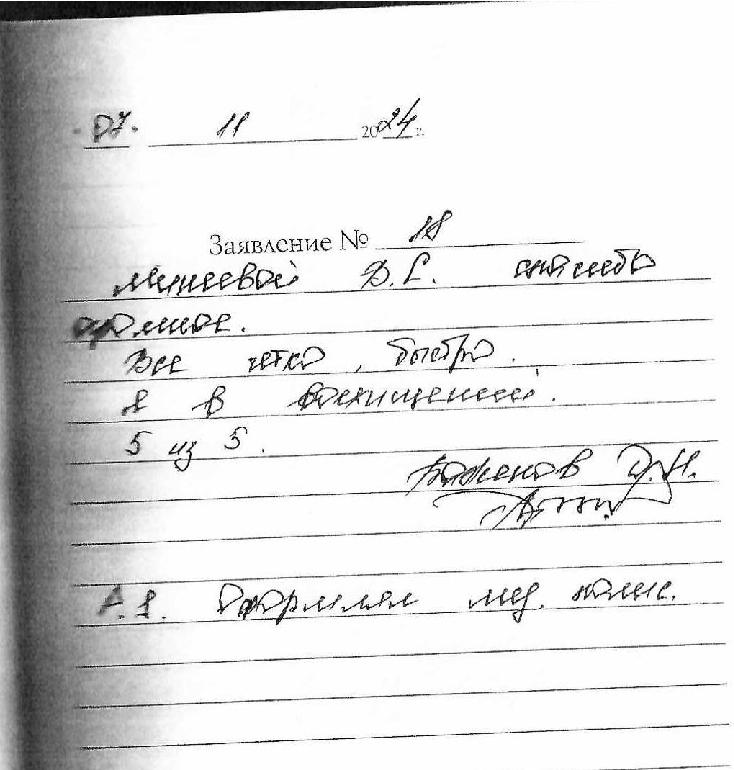 "07" 11 2024 г.
Заявление № 18
Минеевой Д.С. спасибо
огромное.
Все четко, быстро.
Я в восхищении.
5 из 5.
Баженов Д.Н.
Оформлял мед. полис.